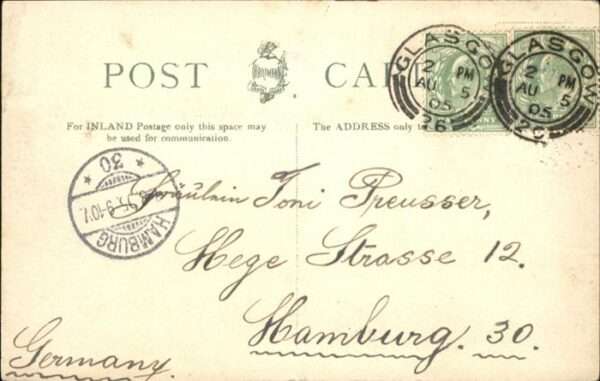 POST CA
GLASGOW
2 PM
AU 5
05
26
GLASGOW
2 PM
AU 5
05
For INLAND Postage only this space may
be used for communication.
The ADDRESS only to
30
HAMBURG
Fräulein Toni Preusser,
Hege Strasse 12.
Hamburg. 30.
Germany.